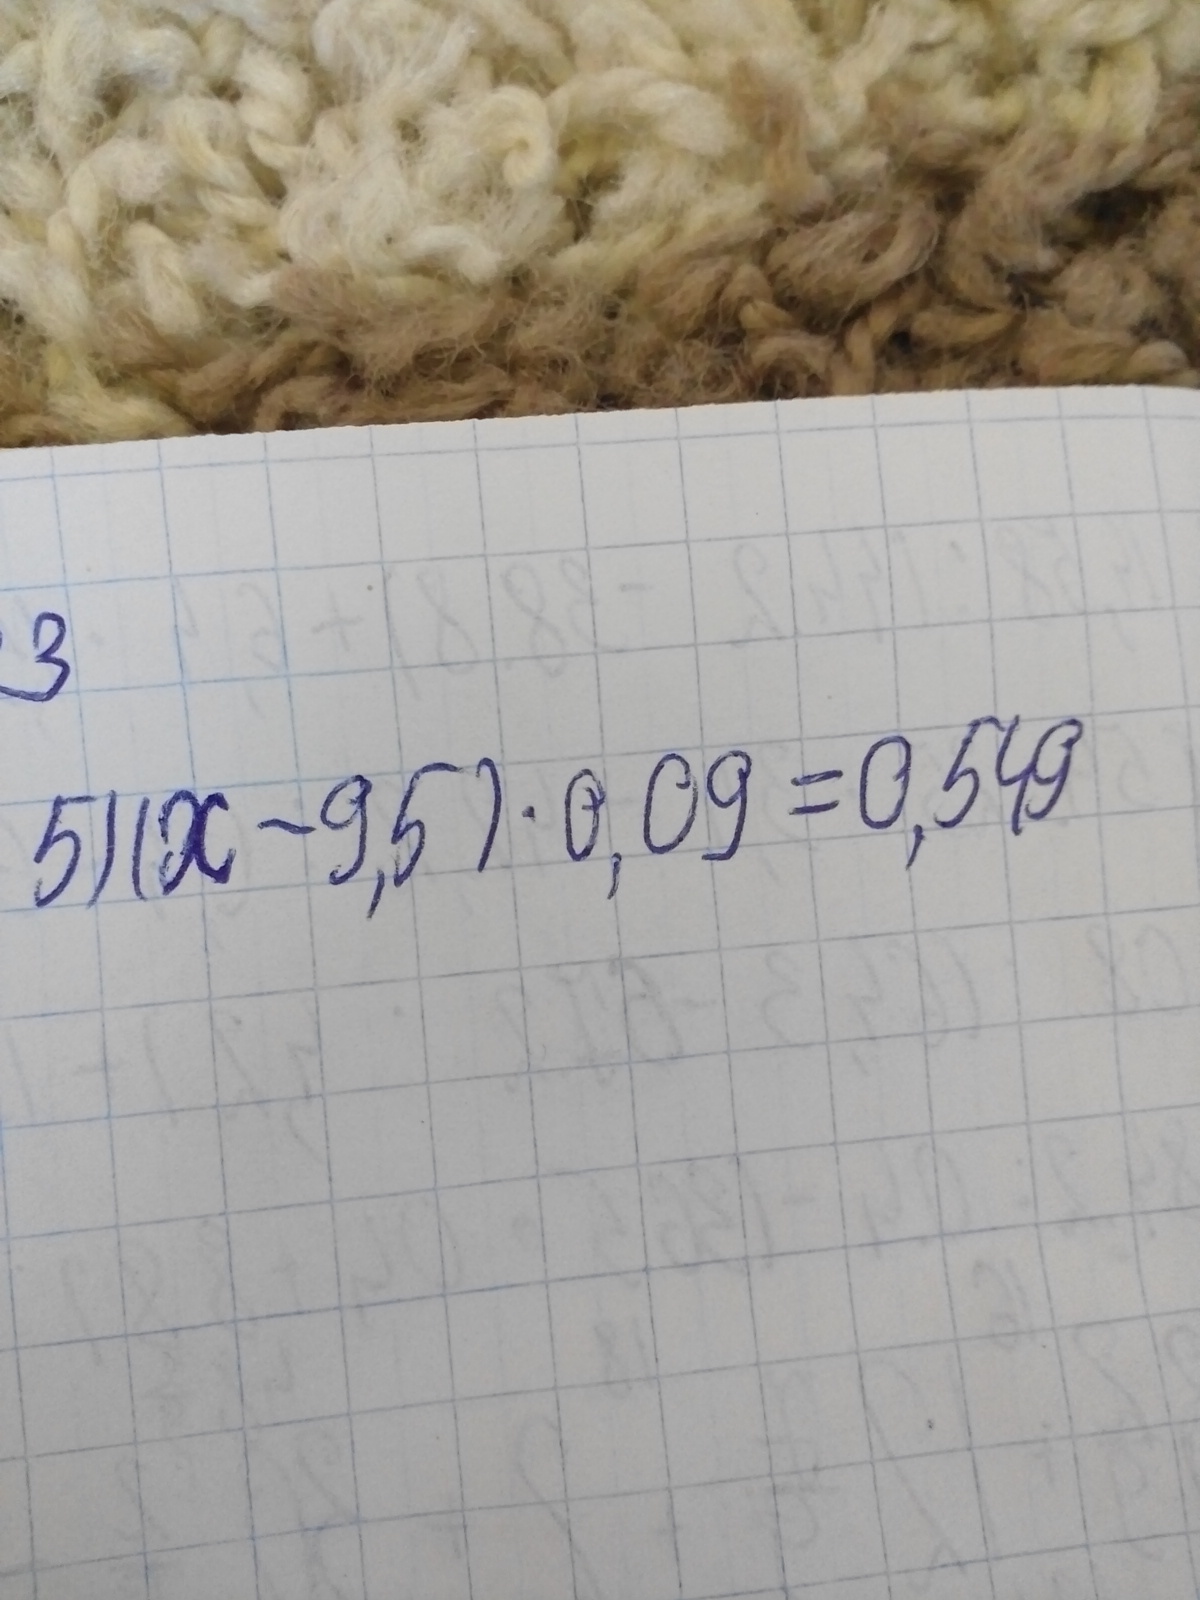 3
5) (x - 9,5) · 0,09 = 0,549